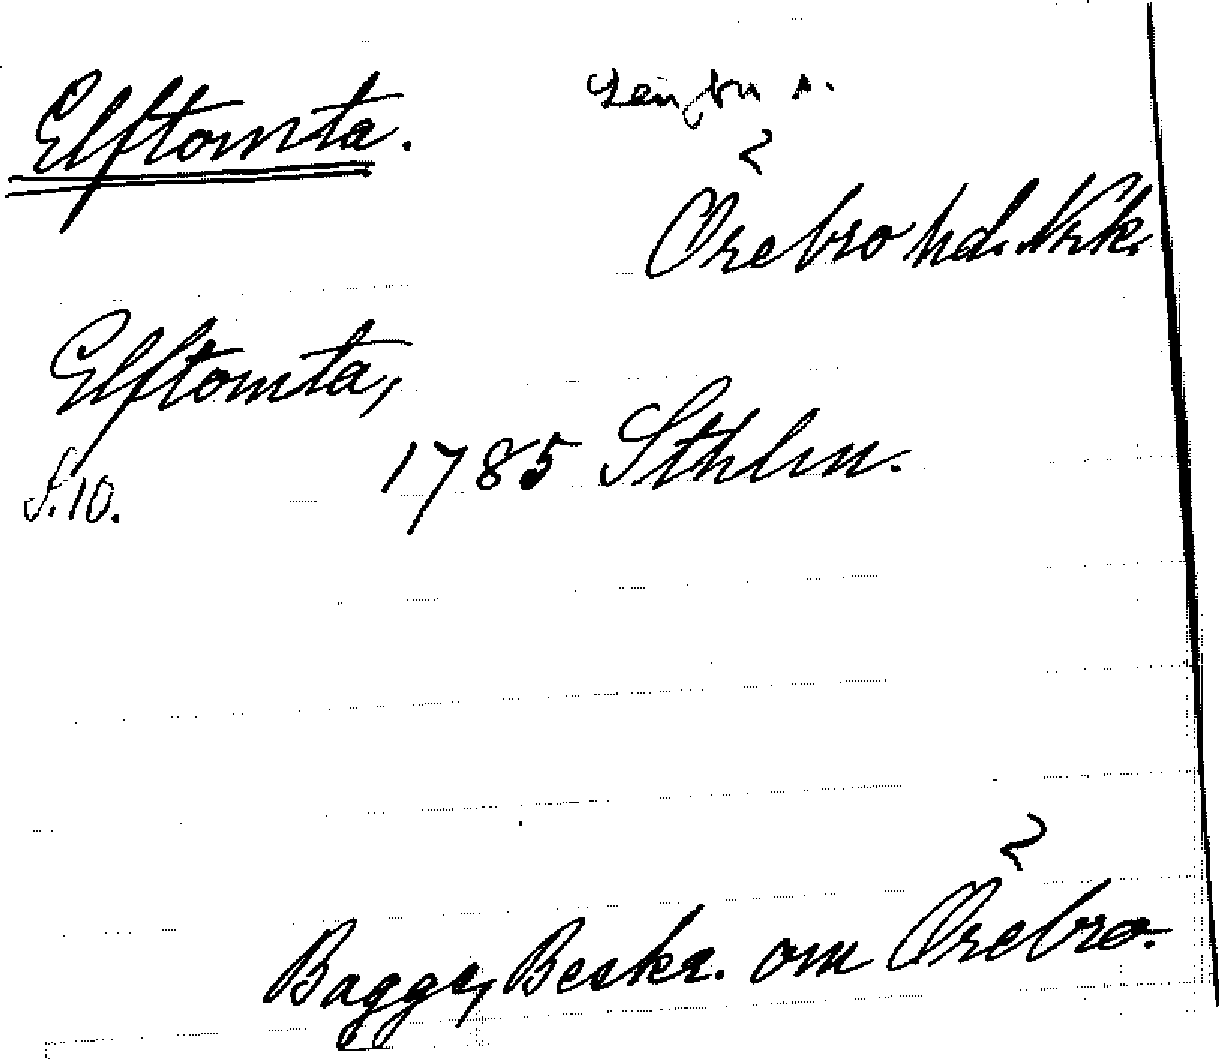 Elftomta.
Örebro hd. Nrk.
Elftomta,
S. 10. 1785 Sthlm.
Bagge, Beskr. om Örebro.